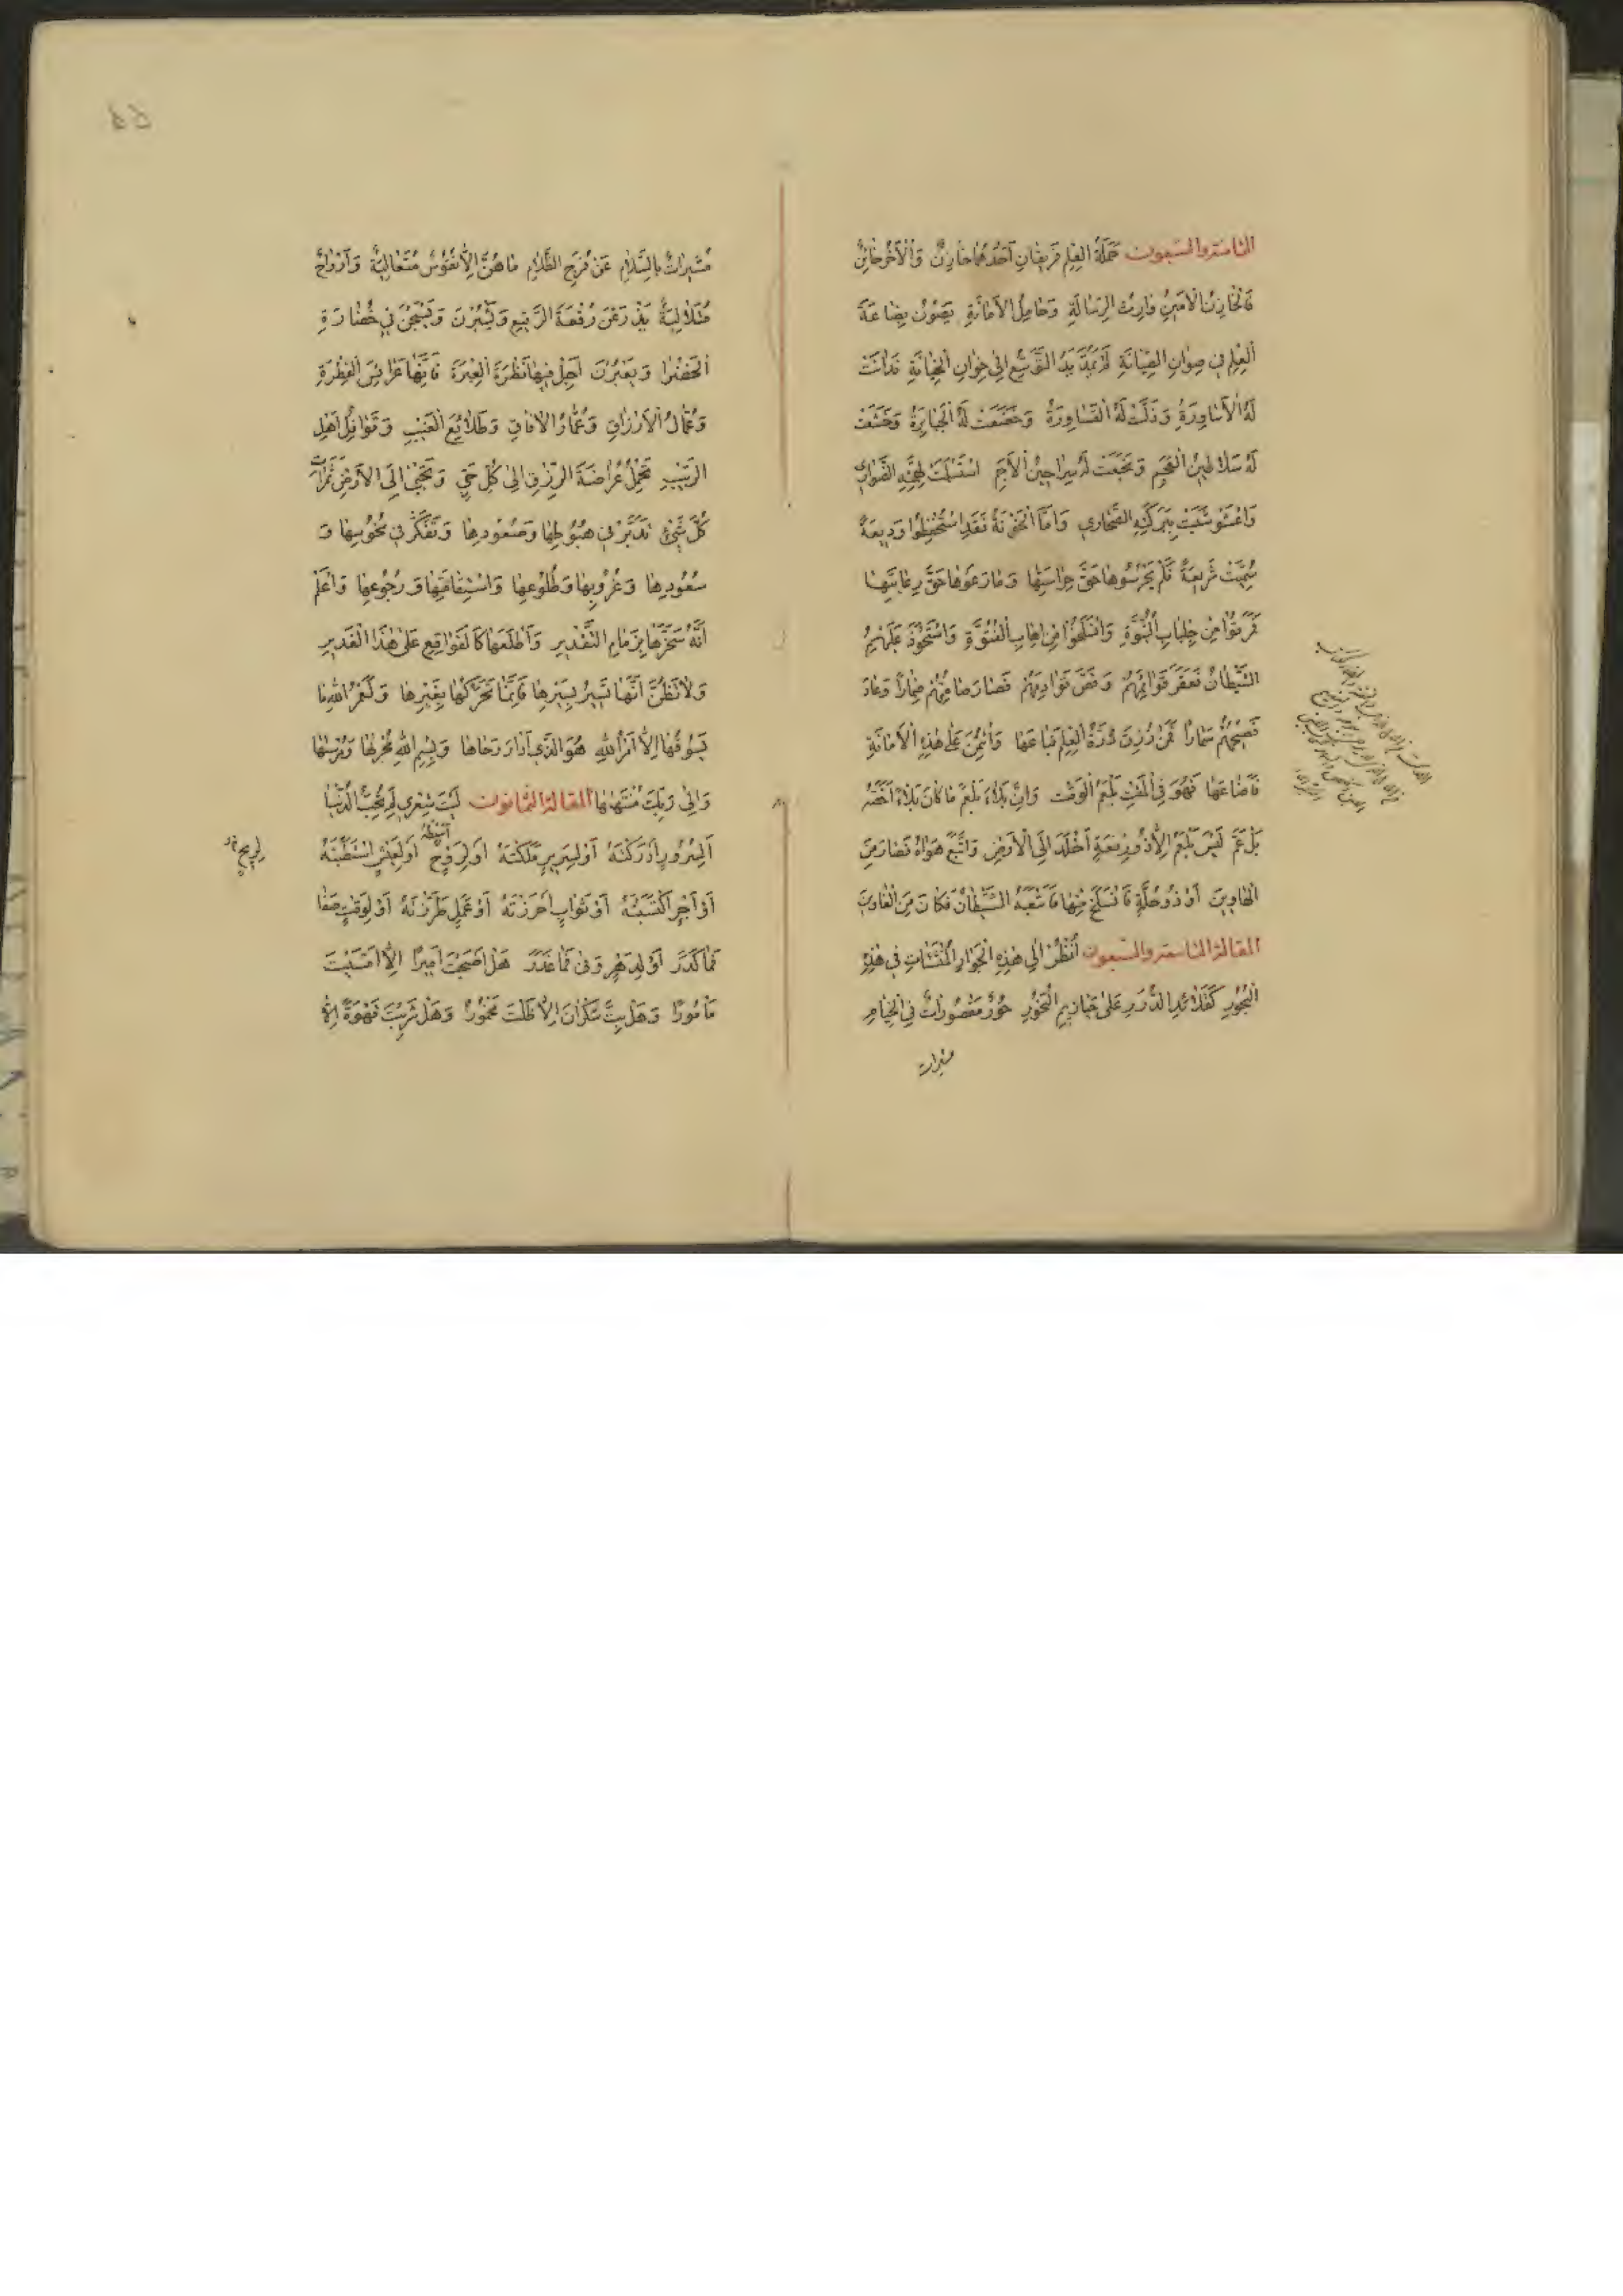 الثامنة والسبعون حَمَلَةُ العِلْمِ فَرِيقَانِ اَحَدُهُمَا خَازِنٌ وَالْآخَرُ خَائِنٌ
فَالْخَازِنُ الْاَمِينُ وَارِثُ الرِّسَالَةِ وَحَامِلُ الْاَمَانَةِ يَصُونُ بِضَاعَةَ
الْعِلْمِ فِي صِوَانِ الصِّيَانَةِ لَمْ يَمُدَّ يَدَ التَّوَسُّعِ اِلَى خِوَانِ الْخِيَانَةِ فَدَانَتْ
لَهُ الْاَسَاوِرَةُ وَذَلَّتْ لَهُ الْقَسَاوِرَةُ وَخَضَعَتْ لَهُ الْجَبَابِرَةُ وَخَشَعَتْ
لَهُ سَلَاطِينُ الْعَجَمِ وَبَخَعَتْ لَهُ سَرَاحِينُ الْاَجَمِ
وَاعْشَوْشَبَتْ بِبَرَكَتِهِ الصَّحَارِي وَاَمَّا الْخَوَنَةُ فَقَدِ اسْتُحْفِظُوا وَدِيعَةً
سُمِّيَتْ شَرِيعَةً فَلَمْ يَحْرُسُوهَا حَقَّ حِرَاسَتِهَا وَمَا رَعَوْهَا حَقَّ رِعَايَتِهَا
مِنْ جِلْبَابِ النُّبُوَّةِ وَانْسَلَخُوا مِنْ اِهَابِ الْفُتُوَّةِ وَاسْتَحْوَذَ عَلَيْهِمُ
الشَّيْطَانُ فَعَقَرَ قَوَائِمَهُمْ وَقَصَّ قَوَادِمَهُمْ فَصَارَ ضِمَارًا وَعَادَ
فَمَنْ رُزِقَ دُرَّةَ الْعِلْمِ فَبَاعَهَا وَاُتُمِنَ عَلَى هَذِهِ الْاَمَانَةِ
فَاَضَاعَهَا فَهُوَ فِي الْمَقْتِ بَلْعَمُ الْوَقْتِ وَاِنَّ بَلَاءَ بَلْعَمٍ مَا كَانَ بَلَاءً اَخَصَّهُ
بَلْ عَمَّ لَيْسَ بَلْعَمُ اِلَّا ذُو رِفْعَةٍ اَخْلَدَ اِلَى الْاَرْضِ وَاتَّبَعَ هَوَاهُ فَصَارَ مِنَ
الْهَاوِينَ اَوْ ذُو حُلَّةٍ فَانْسَلَخَ مِنْهَا فَاَتْبَعَهُ الشَّيْطَانُ فَكَانَ مِنَ الْغَاوِينَ
المقالة التاسعة والسبعون اُنْظُرْ اِلَى هَذِهِ الْجَوَارِ الْمُنْشَاٰتِ فِي هَذِهِ
الْبُحُورِ كَقَلَائِدِ الدُّرَرِ عَلَى حَيَازِيمِ النُّحُورِ حُورٌ مَقْصُورَاتٌ فِي الْخِيَامِ
مشيرات
مُشِيرَاتٌ بِالسَّلَامِ عَنْ فُرَجِ الظَّلَامِ مَا هُنَّ اِلَّا نُفُوسٌ مُتَعَالِيَةٌ وَاَرْوَاحٌ
مُتَلَالِيَةٌ يَذْرَعْنَ رُقْعَةَ الرَّقِيعِ وَيَسْبُرْنَ وَيَسْبَحْنَ فِي خُضَارَةِ
الْخَضْرَا وَيَعْبُرْنَ اَجِلْ فِيهَا نَظْرَةَ الْعِبْرَةِ فَاِنَّهَا عَرَائِسُ الْفِطْرَةِ
وَعُمَّالُ الْاَرْزَاقِ وَعُمَّارُ الْاٰفَاقِ وَطَلَائِعُ الْغَيْبِ وَقَوَافِلُ اَهْلِ
الرَّيْبِ تَحْمِلُ عُرَاضَةَ الرِّزْقِ اِلَى كُلِّ حَيٍّ وَتَجْبِي اِلَى الْاَرْضِ ثَمَرَاتِ
كُلِّ شَيْءٍ تَدَبَّرْ فِي هُبُوطِهَا وَصُعُودِهَا وَتَفَكَّرْ فِي نُحُوسِهَا وَ
سُعُودِهَا وَغُرُوبِهَا وَطُلُوعِهَا وَاسْتِقَامَتِهَا وَرُجُوعِهَا وَاعْلَمْ
اَنَّهُ سَخَّرَهَا بِزِمَامِ التَّقْدِيرِ وَاَطْلَعَهَا كَالْفَوَاقِعِ عَلَى هَذَا الْغَدِيرِ
وَلَا تَظُنَّ اَنَّهَا تَسِيرُ بِسَيْرِهَا فَاِنَّمَا تَحَرُّكُهَا بِغَيْرِهَا وَلَعَمْرُ اللهِ مَا
يَسُوقُهَا اِلَّا اَمْرُ اللهِ هُوَ الَّذِي اَدَارَ رَحَاهَا وَبِسْمِ اللهِ مُجْرٰيهَا وَمُرْسٰيهَا
وَاِلَى رَبِّكَ مُنْتَهٰيهَا المقالة الثمانون لَيْتَ شِعْرِي لِمَ تُحِبُّ الدُّنْيَا
اَلِسُرُورٍ اَدْرَكْتَهُ اَوْ لِسَرِيرٍ مَلَكْتَهُ اَوْ لِرَوْحٍ اَوْ لِعَيْشٍ اسْتَطَبْتَهُ
اَوْ اَجْرٍ اكْتَسَبْتَهُ اَوْ ثَوَابٍ اَحْرَزْتَهُ اَوْ عَمَلٍ طَرَّزْتَهُ اَوْ لِوَقْتٍ صَفَا
فَمَا كَدَّرَ اَوْ لِدَهْرٍ وَفَى فَمَا غَدَرَ هَلْ اَصْبَحْتَ اَمِيرًا اِلَّا اَمْسَيْتَ
مَأْمُورًا وَهَلْ بِتَّ سَكْرَانَ اِلَّا ظَلْتَ مَخْمُورًا وَهَلْ شَرِبْتَ قَهْوَةً اِلَّا